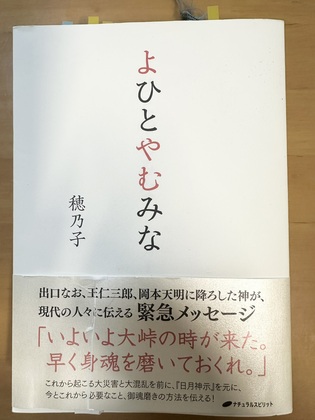 よひとやむみな
穂乃子
出口なお、王仁三郎、岡本天明に降ろした神が、
現代の人々に伝える 緊急メッセージ
「いよいよ大峠の時が来た。
早く身魂を磨いておくれ。」
これから起こる大災害と大混乱を前に、『日月神示』を元に、
今とこれから必要なこと、御魂磨きの方法を伝える!
ナチュラルスピリット